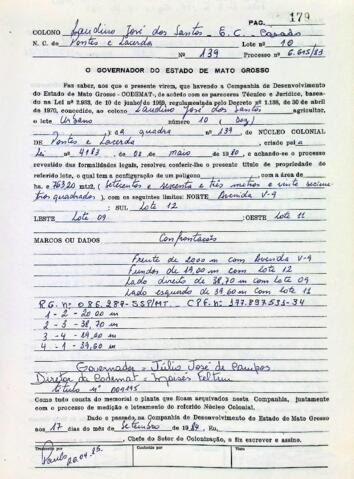 PAG. 179
COLONO Laudino José dos Santos - E.C. Casado
N. C. de Pontes e Lacerda Lote nº 10
Nº 139 Processo nº 6.615/83
O GOVERNADOR DO ESTADO DE MATO GROSSO
Faz saber, aos que o presente virem, que havendo a Companhia de Desenvolvimento
do Estado de Mato Grosso - CODEMAT, de acordo com os pareceres Técnico e Jurídico, baseada
na Lei nº 2.983, de 10 de junho de 1969, regulamentada pelo Decreto nº 1.138, de 30 de abril
de 1970, concedido, ao colono Laudino José dos Santos agricultor,
o lote Urbano número 10 (Dez)
) da quadra nº 139 de NÚCLEO COLONIAL
DE Pontes e Lacerda criado pela
Lei nº 4183, de 02 maio de 1980, e achando-se o processo
revestido das formalidades legais, resolveu conferir-lhe o presente título de propriedade do
referido lote, o qual tem a configuração de um polígono com a área de
ha. e 763,20 mt2, (setecentos e sessenta e três metros e vinte
quadrados), com os seguintes limites: NORTE Avenida V-9
: SUL Lote 12
LESTE Lote 09 :OESTE Lote 11
MARCOS OU DADOS Confrontacões
Frente de 20,00 m com Avenida V-9
Fundos de 19,00 m com lote 12
Lado direito de 38,70 m com lote 09
Lado esquerdo de 39,60 m com lote 11
R.G. nº 086.287-SSP/MT. CPF. nº 177.897.531-34
1 - 2 - 20,00 m
2 - 3 - 38,70 m
3 - 4 - 19,00 m
4 - 1 - 39,60 m
Governador = Júlio José de Campos
Diretor da Codemat = Moisés Feltrin
título nº 004195
Como tudo consta do memorial e planta que foram arquivados nesta Companhia, juntamente
com o processo de medição e loteamento do referido Núcleo Colonial.
Dado e passado na Companhia de Desenvolvimento do Estado de Mato Grosso
aos 17 dias do mês de Setembro de 1984, Eu,
, Chefe do Setor de Colonização, o fiz escrever e assino.
Transcrito por Conferido por Visto
Paulo 26.04.85.